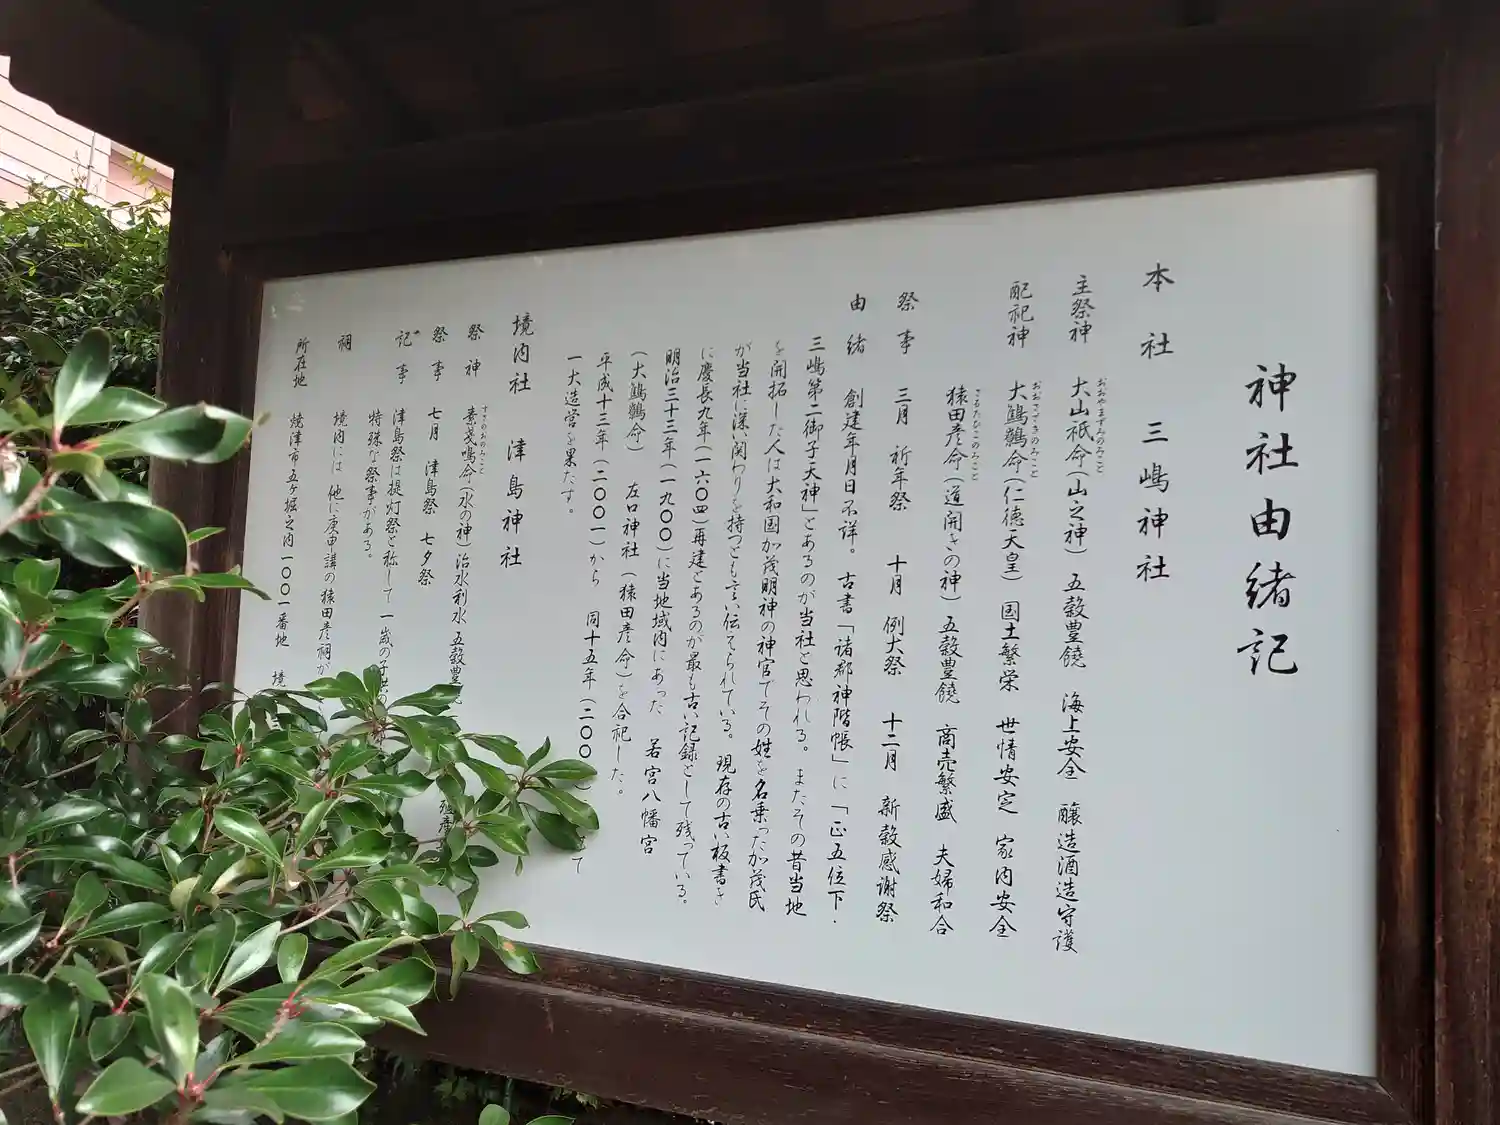 神社由緒記
本社 三嶋神社
主祭神 大山祇命(山之神) 五穀豊饒 海上安全 醸造酒造守護
おおやまずみのみこと
配祀神 大鷦鷯命(仁徳天皇) 国土繁栄 世情安定 家内安全
おおさざきのみこと
猿田彦命(道開きの神) 五穀豊饒 商売繁盛 夫婦和合
さるたびこのみこと
祭事 三月 祈年祭 十月 例大祭 十二月 新穀感謝祭
由緒 創建年月日不詳。古書「諸郡神階帳」に「正五位下・
三嶋第二御子天神」とあるのが当社と思われる。またその昔当地
を開拓した人は大和国加茂明神の神官でその姓を名乗った加茂氏
が当社に深い関わりを持つとも言い伝えられている。現存の古い板書き
に慶長九年(一六〇四)再建とあるのが最も古い記録として残っている。
明治三十三年(一九〇〇)に当地域内にあった 若宮八幡宮
(大鷦鷯命) 左口神社(猿田彦命)を合祀した。
平成十三年(二〇〇一)から 同十五年(二〇〇 て
一大造営を果たす。
境内社 津島神社
祭神 素戔嗚命(水の神)治水利水 五穀豊饒 殖産
すさのおのみこと
祭事 七月 津島祭 七夕祭
記事 津島祭は提灯祭と称して 一歳の子供の
特殊な祭事がある。
祠 境内には 他に庚申講の猿田彦祠が
所在地 焼津市五ヶ堀之内一〇〇一番地 境